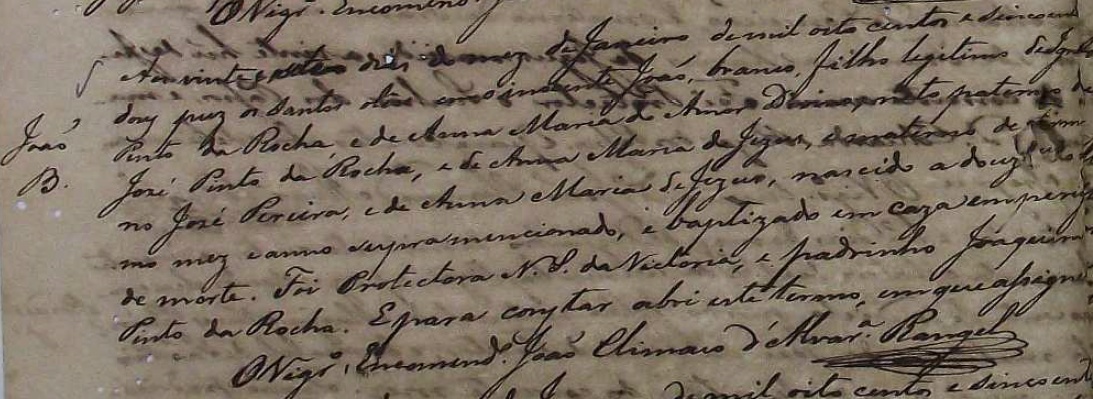 O Vigrº. Encomendº.
Aos vinte e sette dias do mez de Janeiro de mil oito centos e sincoen
João
B.
puz os Santos oleos ao innocente João, branco, filho legitimo de
Pinto da Rocha, e de Anna Maria do Amor Divino, neto paterno de
José Pinto da Rocha, e de Anna Maria de Jezus, e materno de
no José Pereira, e de Anna Maria de Jezus, nascido a doze do
mo mez e anno supra mencionado, e baptizado em caza em perigo
de morte. Foi Protectora N. S. da Victoria, e padrinho Joaquim
Pinto da Rocha. E para conștar abri este termo, em que assignei
O Vigrº. Encomendº. João Climaco d'Alvarª. Rangel
de mil oito centos e sincoent